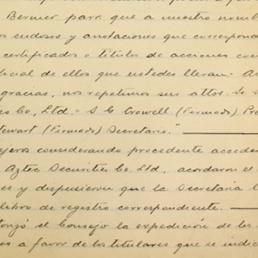 Bermer para que a nuestro nomb
os endosos y anotaciones que correspond
certificados o títulos de acciones co
cial de ellos que ustedes lleran. A
gracias, nos repetimos sus attos. S. s
es Co., Ltd. - S G Crowell (Firmado) Pre
tewart (Firmado) Secretario."
jeros considerando procedente acceder
Aztec Securities Co. Ltd, acordaron el
es y dispusieron que la Secretaría l
libro de registro correspondiente.
torizó el Consejo la expedición de los
os a favor de los titulares que se indic